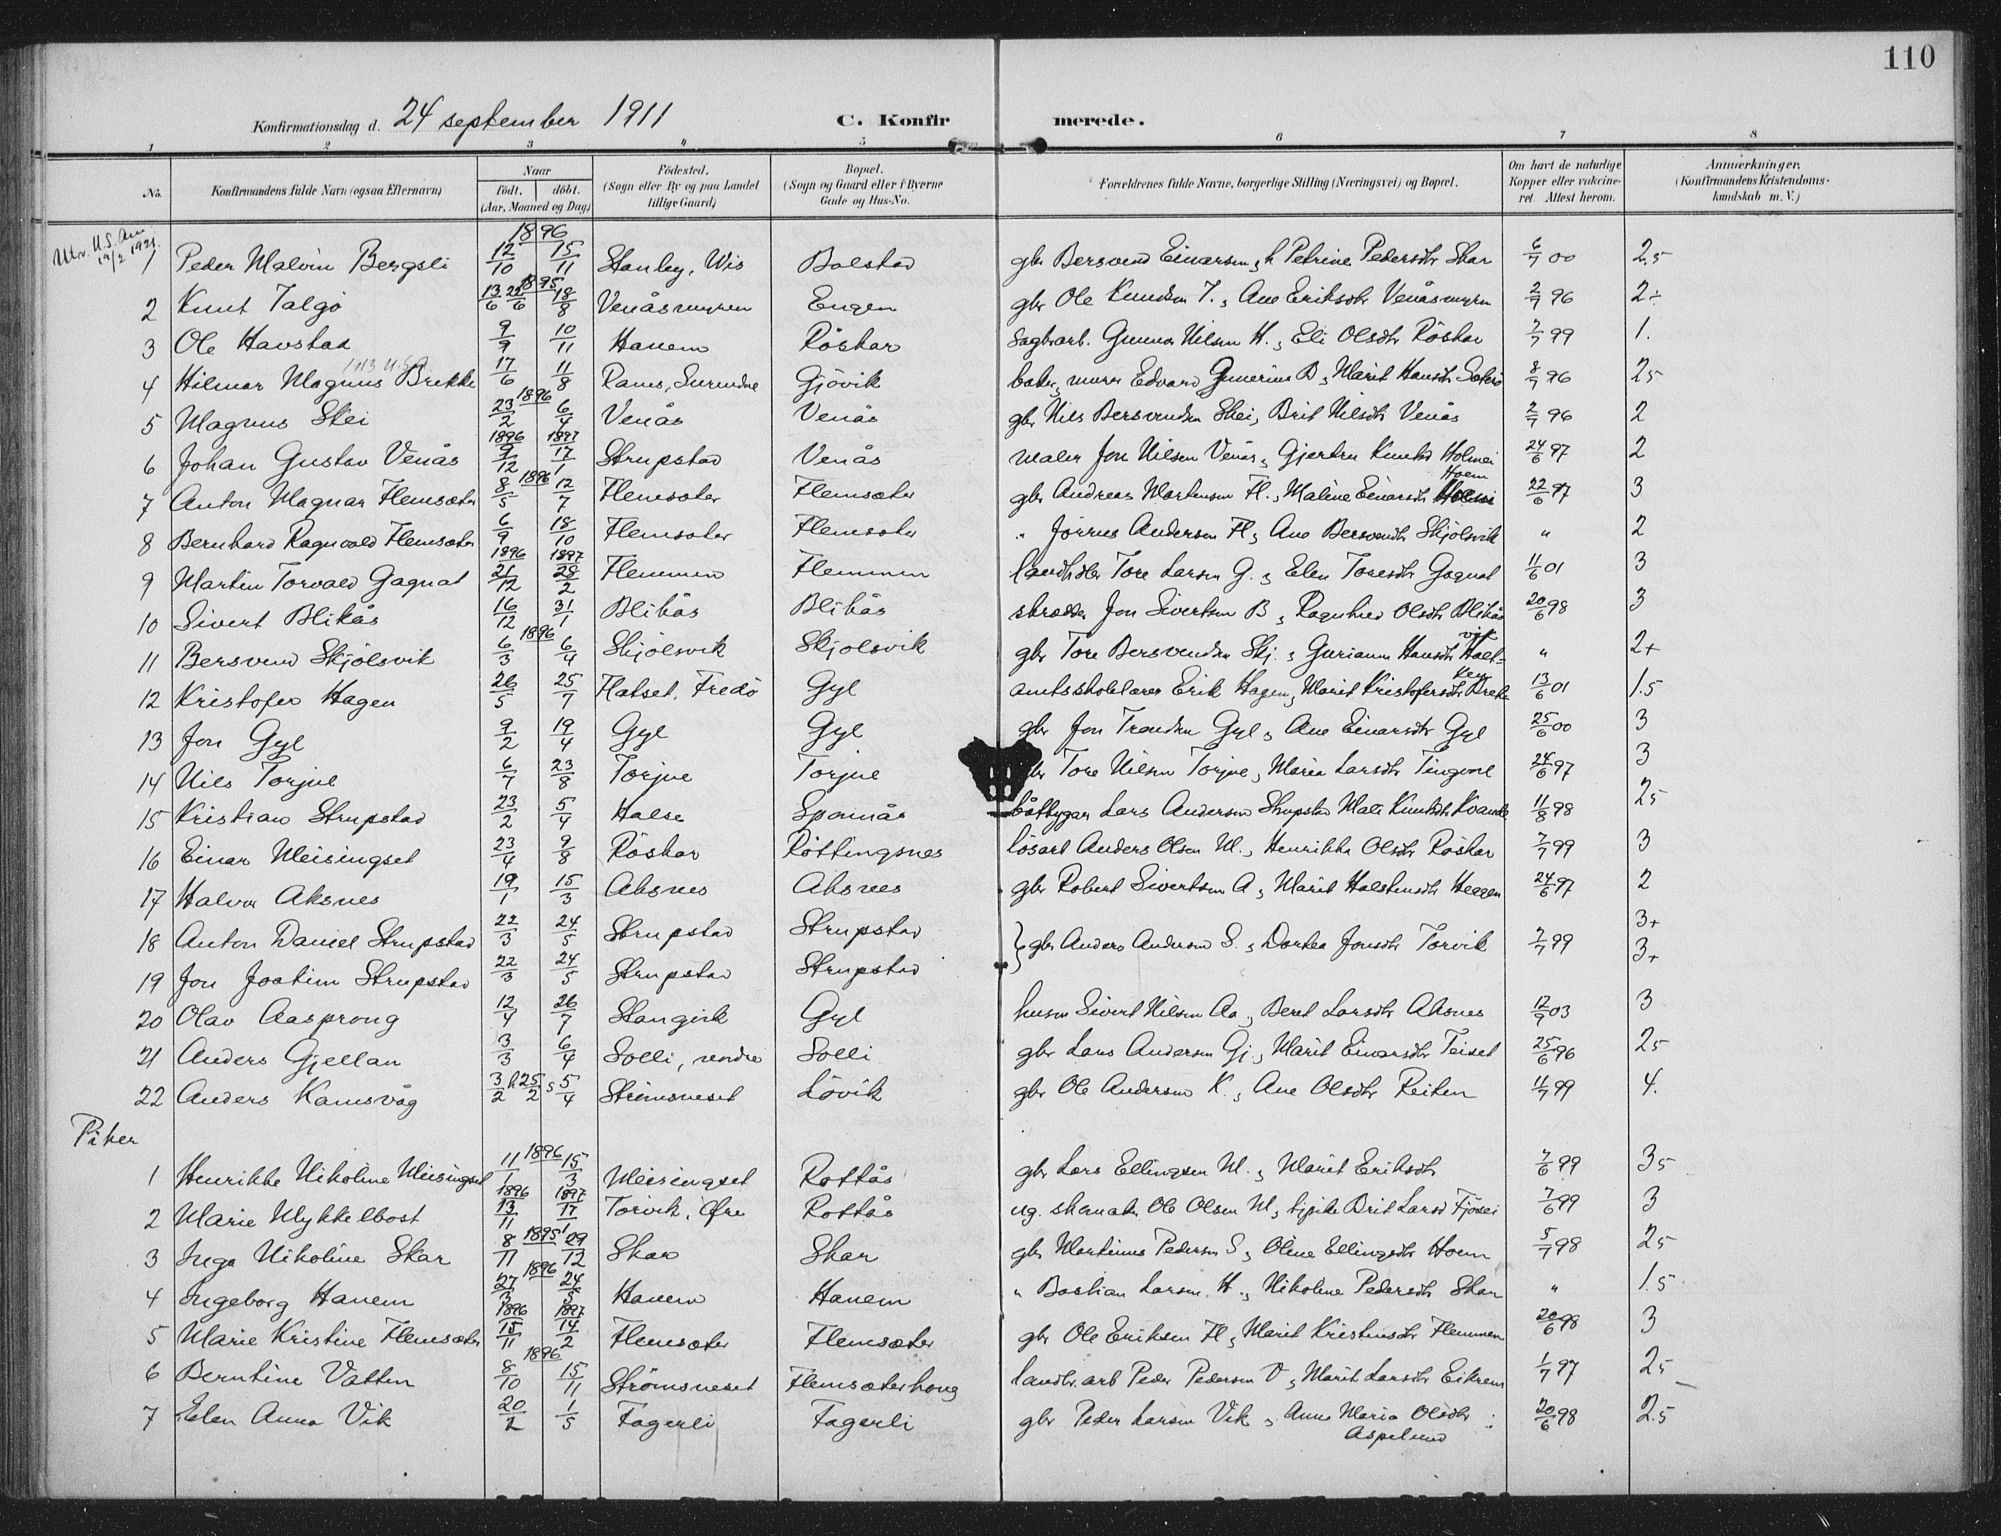 110
Konfirmationsdag d. 24 september 1911 C. Konfirmerede.
1 2 3 4 5 6 7 8
No. Konfirmandens fulde Navn (ogsaa Efternavn) Naar født. døbt. (Aar, Maaned og Dag) Fødested. (Sogn eller By og paa Landet tillige Gaard) Bopæl. (Sogn og Gaard eller i Byerne Gade og Hus-No. Forældrenes fulde Navne, borgerlige Stilling (Næringsvei) og Bopæl. Om havt de naturlige Kopper eller vakcineret. Attest herom. Anmærkninger. (Konfirmandens Kristendomskundskab m. V.)
Utv. U.S. Am 19/2 1921.
1896
1 Peder Malvin Bergsli 12/10 15/11 Stanley, Wis Bolstad gbr Bersvend Einarsen, h Petrine Pedersdtr Skar 6/7 00 2.5
1895
2 Knut Talgø 13/6 22/6 18/8 Venåsmyren Engen gbr Ole Knudsen T., Ane Eriksdtr Venåsmyrn 2/7 96 2÷
3 Ole Havstad 9/9 10/11 Hanem Røskar Sagbrarb. Gunnar Nilsen H., Eli Olsdtr Røskar 7/7 99 1.
1913 U.S.A.
4 Hilmar Magnus Brekke 17/6 11/8 Ranes, Surendae Gjøvik baker, murer Edvard Gunerius B, Marit Hansdtr 8/7 96 25
1896
5 Magnus Skei 23/2 6/4 Venås Venås gbr Nils Bersvendsen Skei, Brit Nilsdtr Venås 2/7 96 2
1896 1897
6 Johan Gustav Venås 9/12 17/1 Strupstad Venås maler Jon Nilsen Venås, Gjertru Knutsd Holmei 24/6 97 2
1896 Hoem
7 Anton Magnar Flemsæter 8/5 12/7 Flemsæter Flemsæter gbr Andreas Martensen Fl., Maline Einarsdtr 22/6 97 3
8 Bernhard Ragnvald Flemsæter 6/9 18/10 Flemsæter Flemsæter " Jørnus Andersen Fl, Ane Bersvendtr Skjølsvik " 2
1896 1897
9 Martin Torvald Gagnat 21/12 28/2 Flemmen Flemmen landhdlr Tore Larsen G., Elen Toresdtr Gagnat 11/6 01 3
10 Sivert Blikås 16/12 31/1 Blikås Blikås skredder Jon Sivertsen B, Ragnhild Olsdtr Blikås 20/6 98 3
1896 vik
11 Bersvend Skjølsvik 6/3 6/4 Skjølsvik Skjølsvik gbr Tore Bersvendsen Skj., Gurianna Hansdtr Holt- " 2+
ken
12 Kristofer Hagen 26/5 25/7 Flatset, Fredø Gyl amtsskolelærer Erik Hagen, Marit Kristofersdtr Brek- 13/6 01 1.5
13 Jon Gyl 9/2 19/4 Gyl Gyl gbr Jon Trondsen Gyl, Ane Einarsdtr Gyl 25/6 00 3
14 Nils Torjul 6/7 23/8 Torjul Torjul gbr Tore Nilsen Torjul, Maria Larsdtr Tingvol 24/6 97 3
15 Kristian Strupstad 23/2 5/4 Halse Spornås båtbygger Lars Andersen Strupstad Mali Knutsdtr Kvande 11/8 98 25
16 Einar Meisingset 23/4 9/8 Røskar Røttingsnes løsarb Anders Olsen M., Henrikke Olsdtr Røskar 7/7 99 3
17 Halvor Aksnes 19/1 15/3 Aksnes Aksnes gbr Robert Sivertsen A, Marit Halstensdtr Heggem 24/6 97 2
18 Anton Daniel Strupstad 22/3 24/5 Strupstad Strupstad } gbr Anders Andersen S., Dortea Jonsdtr Torvik 7/7 99 3+
19 Jon Joakim Strupstad 22/3 24/5 Strupstad Strupstad 3+
20 Olav Aasprong 12/4 26/7 Stangvik Gyl husm Sivert Nilsen Aa., Beret Larsdtr Aksnes 12/7 03 3
21 Anders Gjellan 3/3 6/4 Solli, nordre Solli gbr Lars Andersen Gj., Marit Einarsdtr Teiset 25/6 96 25
22 Anders Kamsvåg 3/2 h 25/2 s 5/4 Strømsneset Løvik gbr Ole Andersen K., Ane Olsdtr Reiten 11/7 99 4.
Piker
1896
1 Henrikke Nikoline Meisingset 11/1 15/3 Meisingset Rottås gbr Lars Ellingsen M., Marit Eriksdtr 7/6 99 35
1896 1897
2 Marie Mykkelbost 13/11 17/1 Torvik, Øre Rottås ug. skomaker Ole Olsen M, tjpike Brit Larsd Fjøsei 7/6 99 3
1895
3 Inga Nikoline Skar 8/11 29/12 Skar Skar gbr Martinus Pedersen S, Oline Ellingsdtr Hoem 5/7 98 25
1896
4 Ingeborg Hanem 27/3 24/5 Hanem Hanem " Bastian Larsen H., Nikoline Pedersdtr Skar " 1.5
1896 1897
5 Marie Kristine Flemsæter 15/11 14/2 Flemsæter Flemsæter gbr Ole Eriksen Fl, Marit Kristensdtr Flemmen 20/6 98 3
1896
6 Berntine Vatten 8/10 15/11 Strømsneset Flemsæterhaug landbr.arb Peder Pedersen V, Marit Larsdtr Eikrem 1/7 97 25
7 Elen Anna Vik 20/2 1/5 Fagerli Fagerli gbr Peder Larsen Vik, Anne Maria Olsdtr 20/6 98 2.5
Aspelund